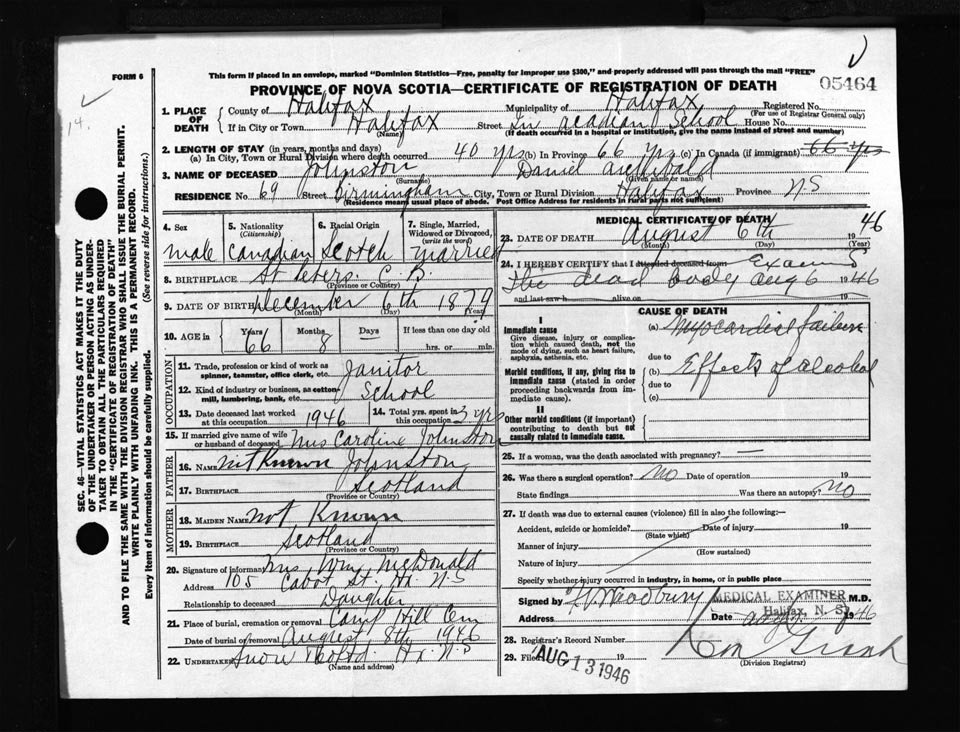 FORM 6
This form if placed in an envelope, marked "Dominion Statistics—Free, penalty for improper use $300," and properly addressed will pass through the mail "FREE"
PROVINCE OF NOVA SCOTIA—CERTIFICATE OF REGISTRATION OF DEATH
05464
14.
SEC. 46—VITAL STATISTICS ACT MAKES IT THE DUTY
OF THE UNDERTAKER OR PERSON ACTING AS UNDER-
TAKER TO OBTAIN ALL THE PARTICULARS REQUIRED
IN THE "CERTIFICATE OF REGISTRATION OF DEATH"
AND TO FILE THE SAME WITH THE DIVISION REGISTRAR WHO SHALL ISSUE THE BURIAL PERMIT.
WRITE PLAINLY WITH UNFADING INK. THIS IS A PERMANENT RECORD.
Every item of information should be carefully supplied. (See reverse side for instructions.)
1. PLACE OF DEATH County of Halifax Municipality of Halifax Registered No.
(For use of Registrar General only)
If in City or Town Halifax Street In acadian School House No.
(Name) (If death occurred in a hospital or institution, give the name instead of street and number)
2. LENGTH OF STAY (in years, months and days)
(a) In City, Town or Rural Division where death occurred 40 yrs (b) In Province 66 yrs (c) In Canada (if immigrant) 66 yrs
3. NAME OF DECEASED Johnston Daniel Archibald
(Surname) (Given name or names)
RESIDENCE No. 69 Street Birmingham City, Town or Rural Division Halifax Province N.S
(Residence means usual place of abode. Post Office Address for residents in rural parts not sufficient)
4. Sex 5. Nationality (Citizenship) 6. Racial Origin 7. Single, Married, Widowed or Divorced, (write the word)
male Canadian Scotch married
8. BIRTHPLACE St Peters. C.B.
(Province or Country)
9. DATE OF BIRTH December 6th 1879
(Month) (Day) (Year)
10. AGE in Years Months Days If less than one day old
66 8 — hrs. or min.
OCCUPATION
11. Trade, profession or kind of work as spinner, teamster, office clerk, etc. Janitor
12. Kind of industry or business, as cotton-mill, lumbering, bank, etc. School
13. Date deceased last worked at this occupation 1946 14. Total yrs. spent in this occupation 3 yrs
15. If married give name of wife or husband of deceased Mrs Caroline Johnston
FATHER
16. Name not Known Johnston
17. Birthplace Scotland
(Province or Country)
MOTHER
18. Maiden Name not Known
19. Birthplace Scotland
(Province or Country)
20. Signature of informant Mrs Wm McDonald
Address 105 Cabot St. Hx N.S
Relationship to deceased Daughter
21. Place of burial, cremation or removal Camp Hill Cem
Date of burial or removal August 8th 1946
22. Undertaker Snow & Co Ltd. Hx N.S
(Name and address)
MEDICAL CERTIFICATE OF DEATH
23. DATE OF DEATH August 6th 1946
(Month) (Day) (Year)
24. I HEREBY CERTIFY that I attended deceased from Examined
The dead body Aug 6 1946
and last saw h alive on 19
CAUSE OF DEATH
I
Immediate cause
Give disease, injury or complication which caused death, not the mode of dying, such as heart failure, asphyxia, asthenia, etc.
(a) Myocardial failure
due to
Morbid conditions, if any, giving rise to immediate cause (stated in order proceeding backwards from immediate cause).
(b) Effects of alcohol
due to
(c)
II
Other morbid conditions (if important) contributing to death but not causally related to immediate cause.
25. If a woman, was the death associated with pregnancy? —
26. Was there a surgical operation? No Date of operation 19
State findings Was there an autopsy? No
27. If death was due to external causes (violence) fill in also the following:—
Accident, suicide or homicide? Date of injury 19
(State which)
Manner of injury
(How sustained)
Nature of injury
Specify whether injury occurred in industry, in home, or in public place
Signed by Woodbury MEDICAL EXAMINER M.D.
Halifax, N. S.
Date 1946
28. Registrar's Record Number
29. Filed AUG 13 1946 19
(Division Registrar)